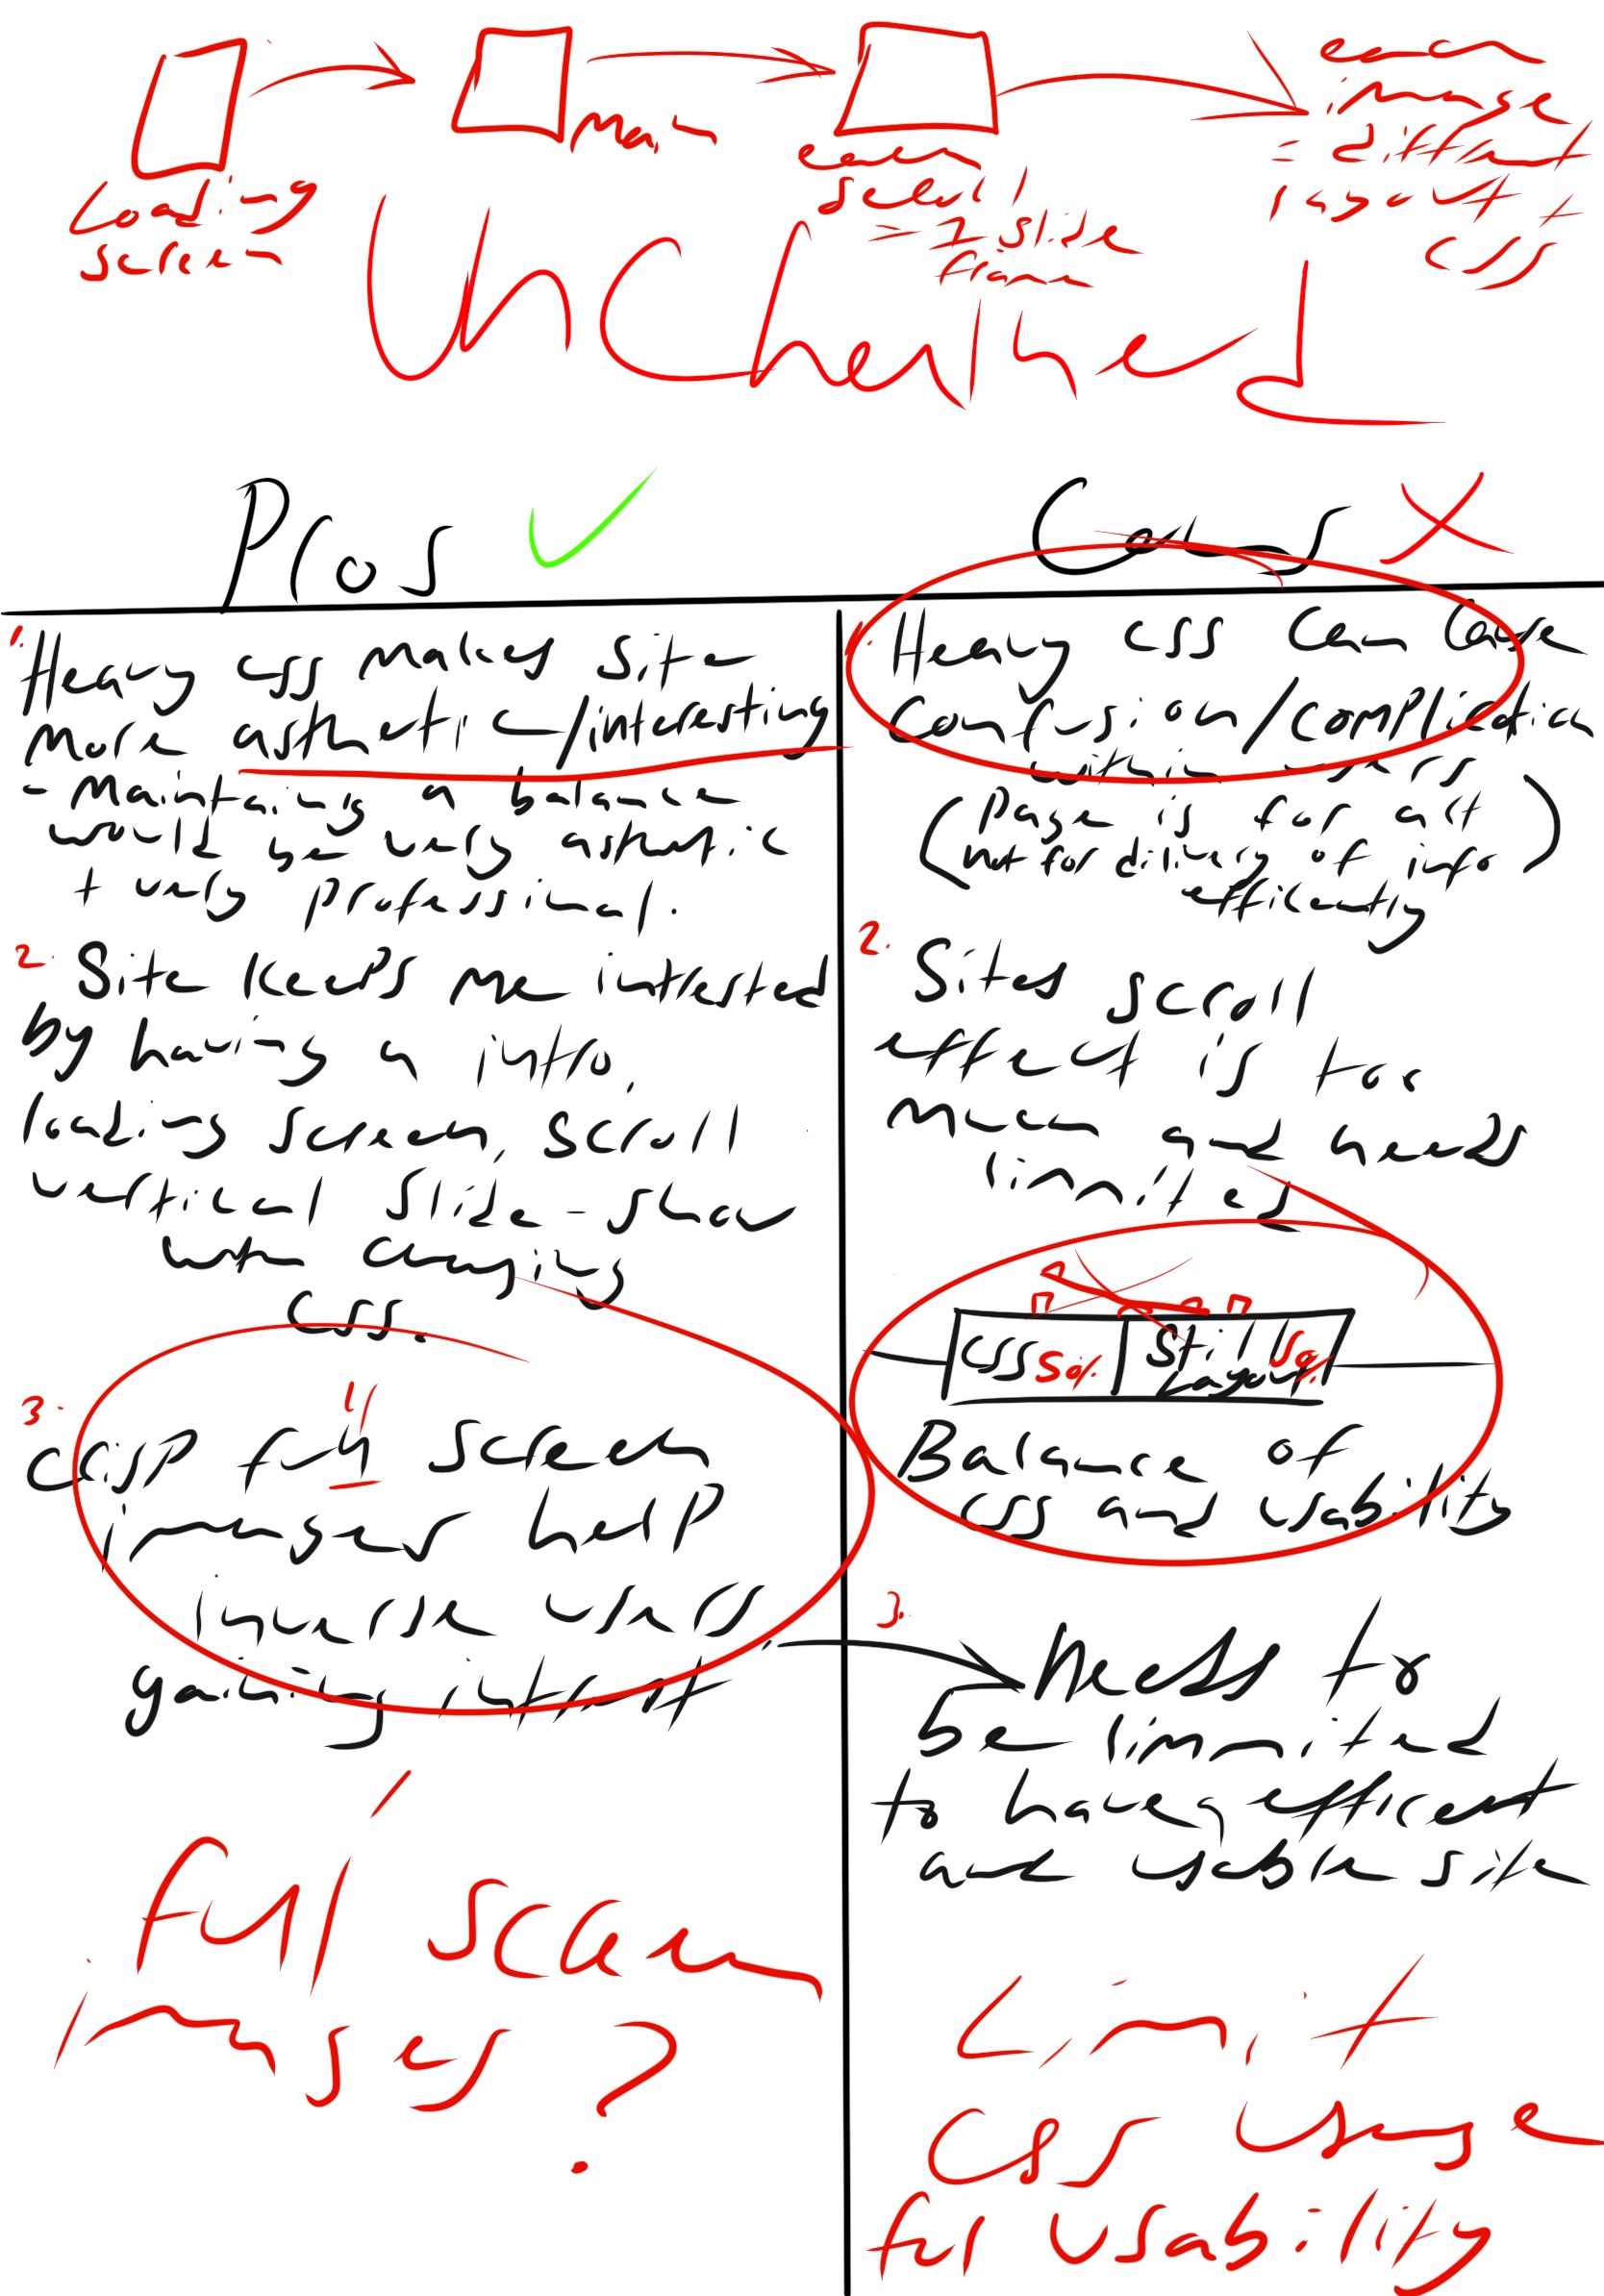 loading
screen
main
enen
select
- 1 slide
from
enen
image
- different
layout +
css
Unchained
Pros
Cons
1.
Heavy css makes site
more asthetic/interesting
- maintaining a balance
would be very asthetic
+ very professional.
2. Site keeps me intrested
by having a intro,
loading screen, scroll
vertical slide-show
with changing
css.
3.
crisp full screen
images help
inverse users
gaining intrest
full screen
images?
1. Heavy css can cause
confusion/complication
within users
(Page is for art
not for dilivery of info)
efficently
2. Sites scroll
effect is too
much and needs
limited
css 50% | still 50%
Layout
Balance of
css and usability
3.
needs to
be limited
to having efficent
and usable site
Limit
css usage
for usability